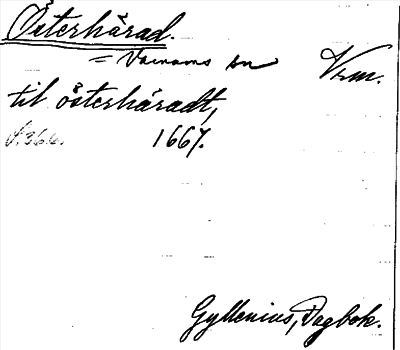 Österhärad.
= Värnums sn
Vrm.
til österhäradt,
s. 366. 1667.
Gyllenius, Dagbok.